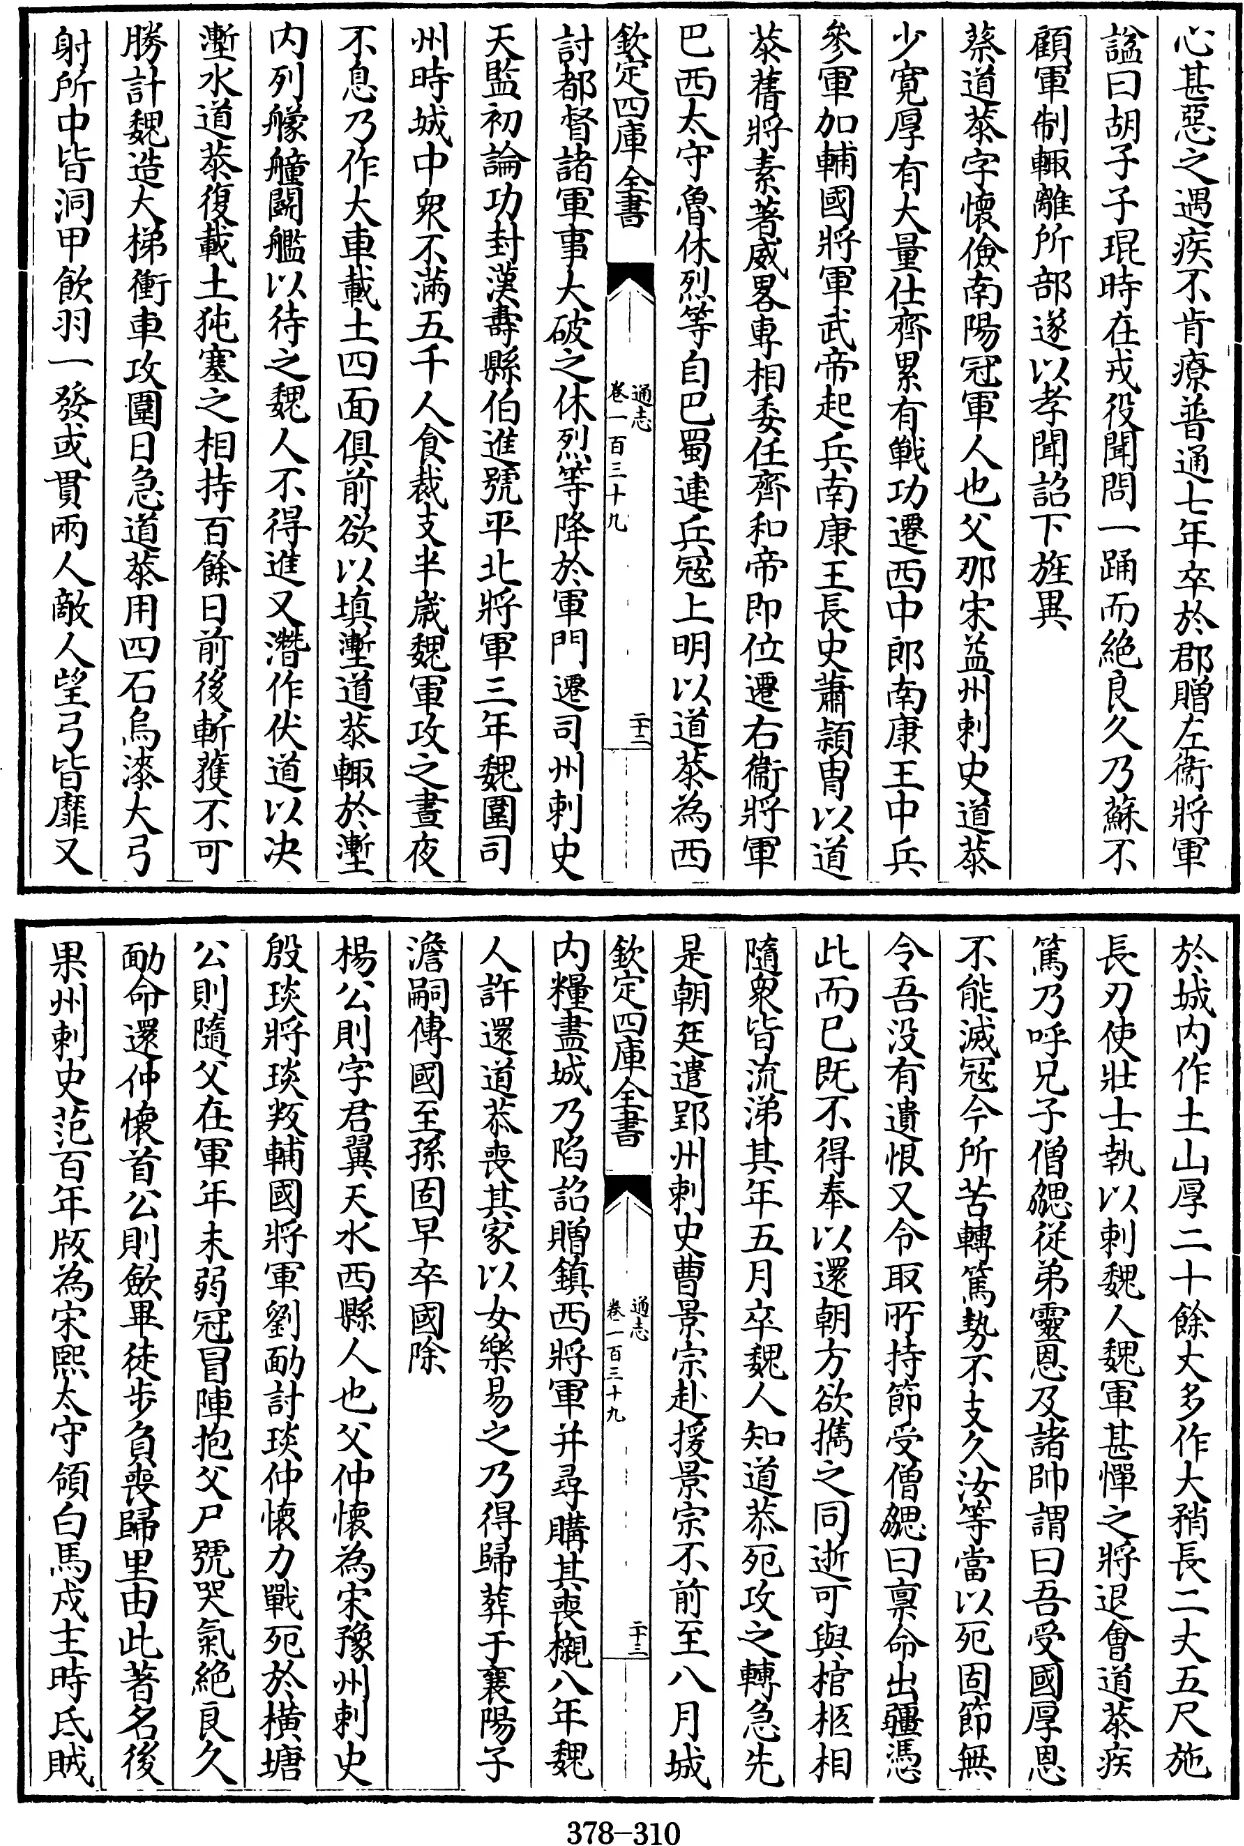 心甚惡之遇疾不肯療普通七年卒於郡贈左衞將軍
諡曰胡子子琨時在戎役聞問一踊而絶良久乃蘇不
顧軍制輙離所部遂以孝聞詔下旌異
蔡道恭字懷儉南陽冠軍人也父那宋益州刺史道恭
少寛厚有大量仕齊累有戰功遷西中郎南康王中兵
參軍加輔國將軍武帝起兵南康王長史蕭頴胄以道
恭舊將素著威畧専相委任齊和帝即位遷右衞將軍
巴西太守魯休烈等自巴蜀連兵寇上明以道恭為西
欽定四庫全書
通志
卷一百三十九
二十二
討都督諸軍事大破之休烈等降於軍門遷司州刺史
天監初論功封漢夀縣伯進號平北將軍三年魏圍司
州時城中衆不滿五千人食裁支半嵗魏軍攻之晝夜
不息乃作大車載土四面俱前欲以填壍道恭輙於壍
内列艨艟鬬艦以待之魏人不得進又潛作伏道以决
壍水道恭復載土㹠塞之相持百餘日前後斬獲不可
勝計魏造大梯衝車攻圍日急道恭用四石烏漆大弓
射所中皆洞甲飲羽一發或貫兩人敵人望弓皆靡又
於城内作土山厚二十餘丈多作大矟長二丈五尺施
長刃使壯士執以刺魏人魏軍甚憚之將退會道恭疾
篤乃呼兄子僧勰從弟靈恩及諸帥謂曰吾受國厚恩
不能滅寇今所苦轉篤勢不支久汝等當以死固節無
令吾没有遺恨又令取所持節受僧勰曰禀命出疆憑
此而已既不得奉以還朝方欲攜之同逝可與棺柩相
隨衆皆流涕其年五月卒魏人知道恭死攻之轉急先
是朝廷遣郢州刺史曹景宗赴援景宗不前至八月城
欽定四庫全書
通志
卷一百三十九
二十三
内糧盡城乃陷詔贈鎮西將軍并尋購其喪櫬八年魏
人許還道恭喪其家以女樂易之乃得歸葬于襄陽子
澹嗣傳國至孫固早卒國除
楊公則字君翼天水西縣人也父仲懷為宋豫州刺史
殷琰將琰叛輔國將軍劉勔討琰仲懷力戰死於横塘
公則隨父在軍年未弱冠冒陣抱父尸號哭氣絶良久
勔命還仲懷首公則斂畢徒歩負喪歸里由此著名後
果州刺史范百年版為宋熙太守領白馬戍主時氐賊
378-310